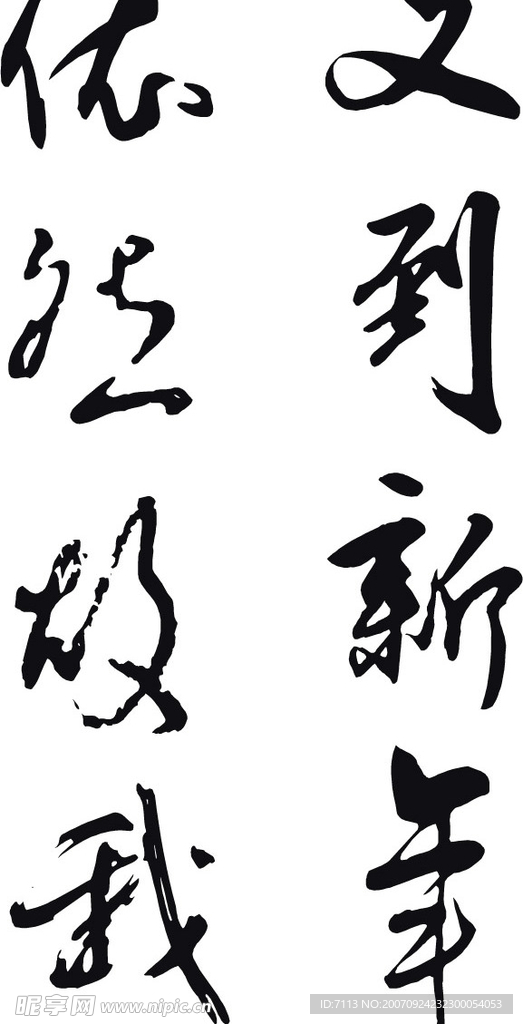 又到新年
依然故我
昵享网 www.nipic.cn
ID:7113 NO:20070924232300054053